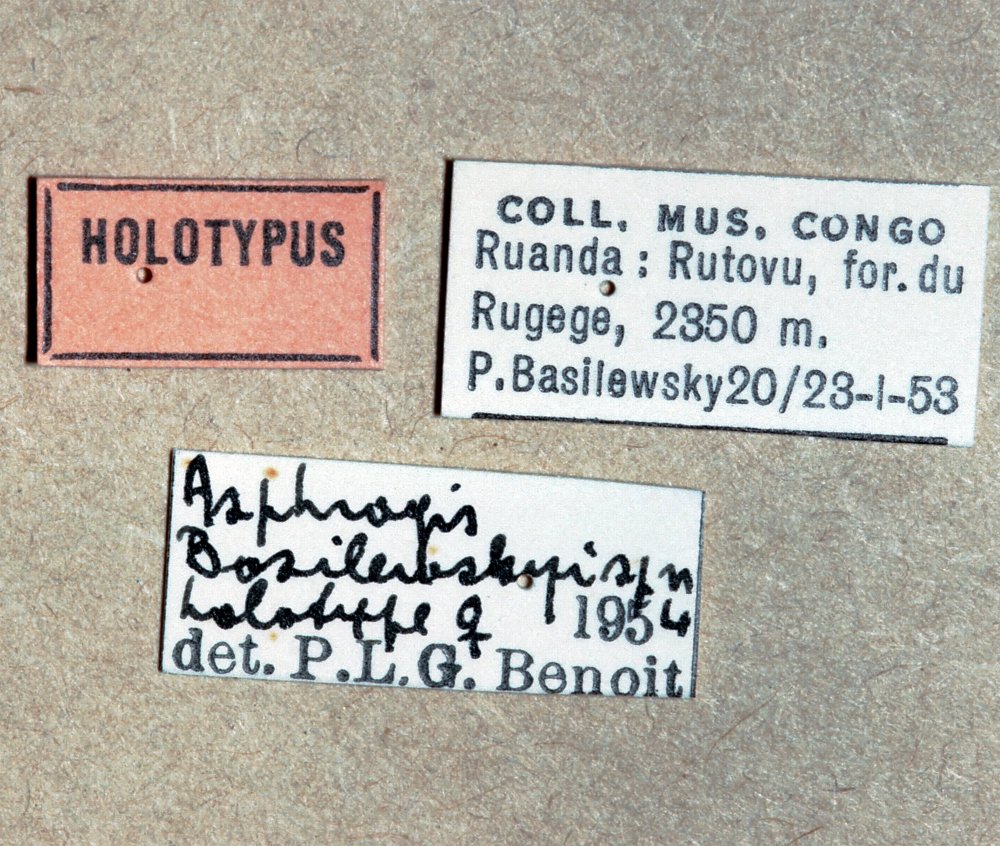 HOLOTYPUS
COLL. MUS. CONGO
Ruanda: Rutovu, for. du
Rugege, 2350 m.
P. Basilewsky 20/23-I-53
Asphragis
Basilewskyi sp n
holotype ♀ 1954
det. P.L.G. Benoit